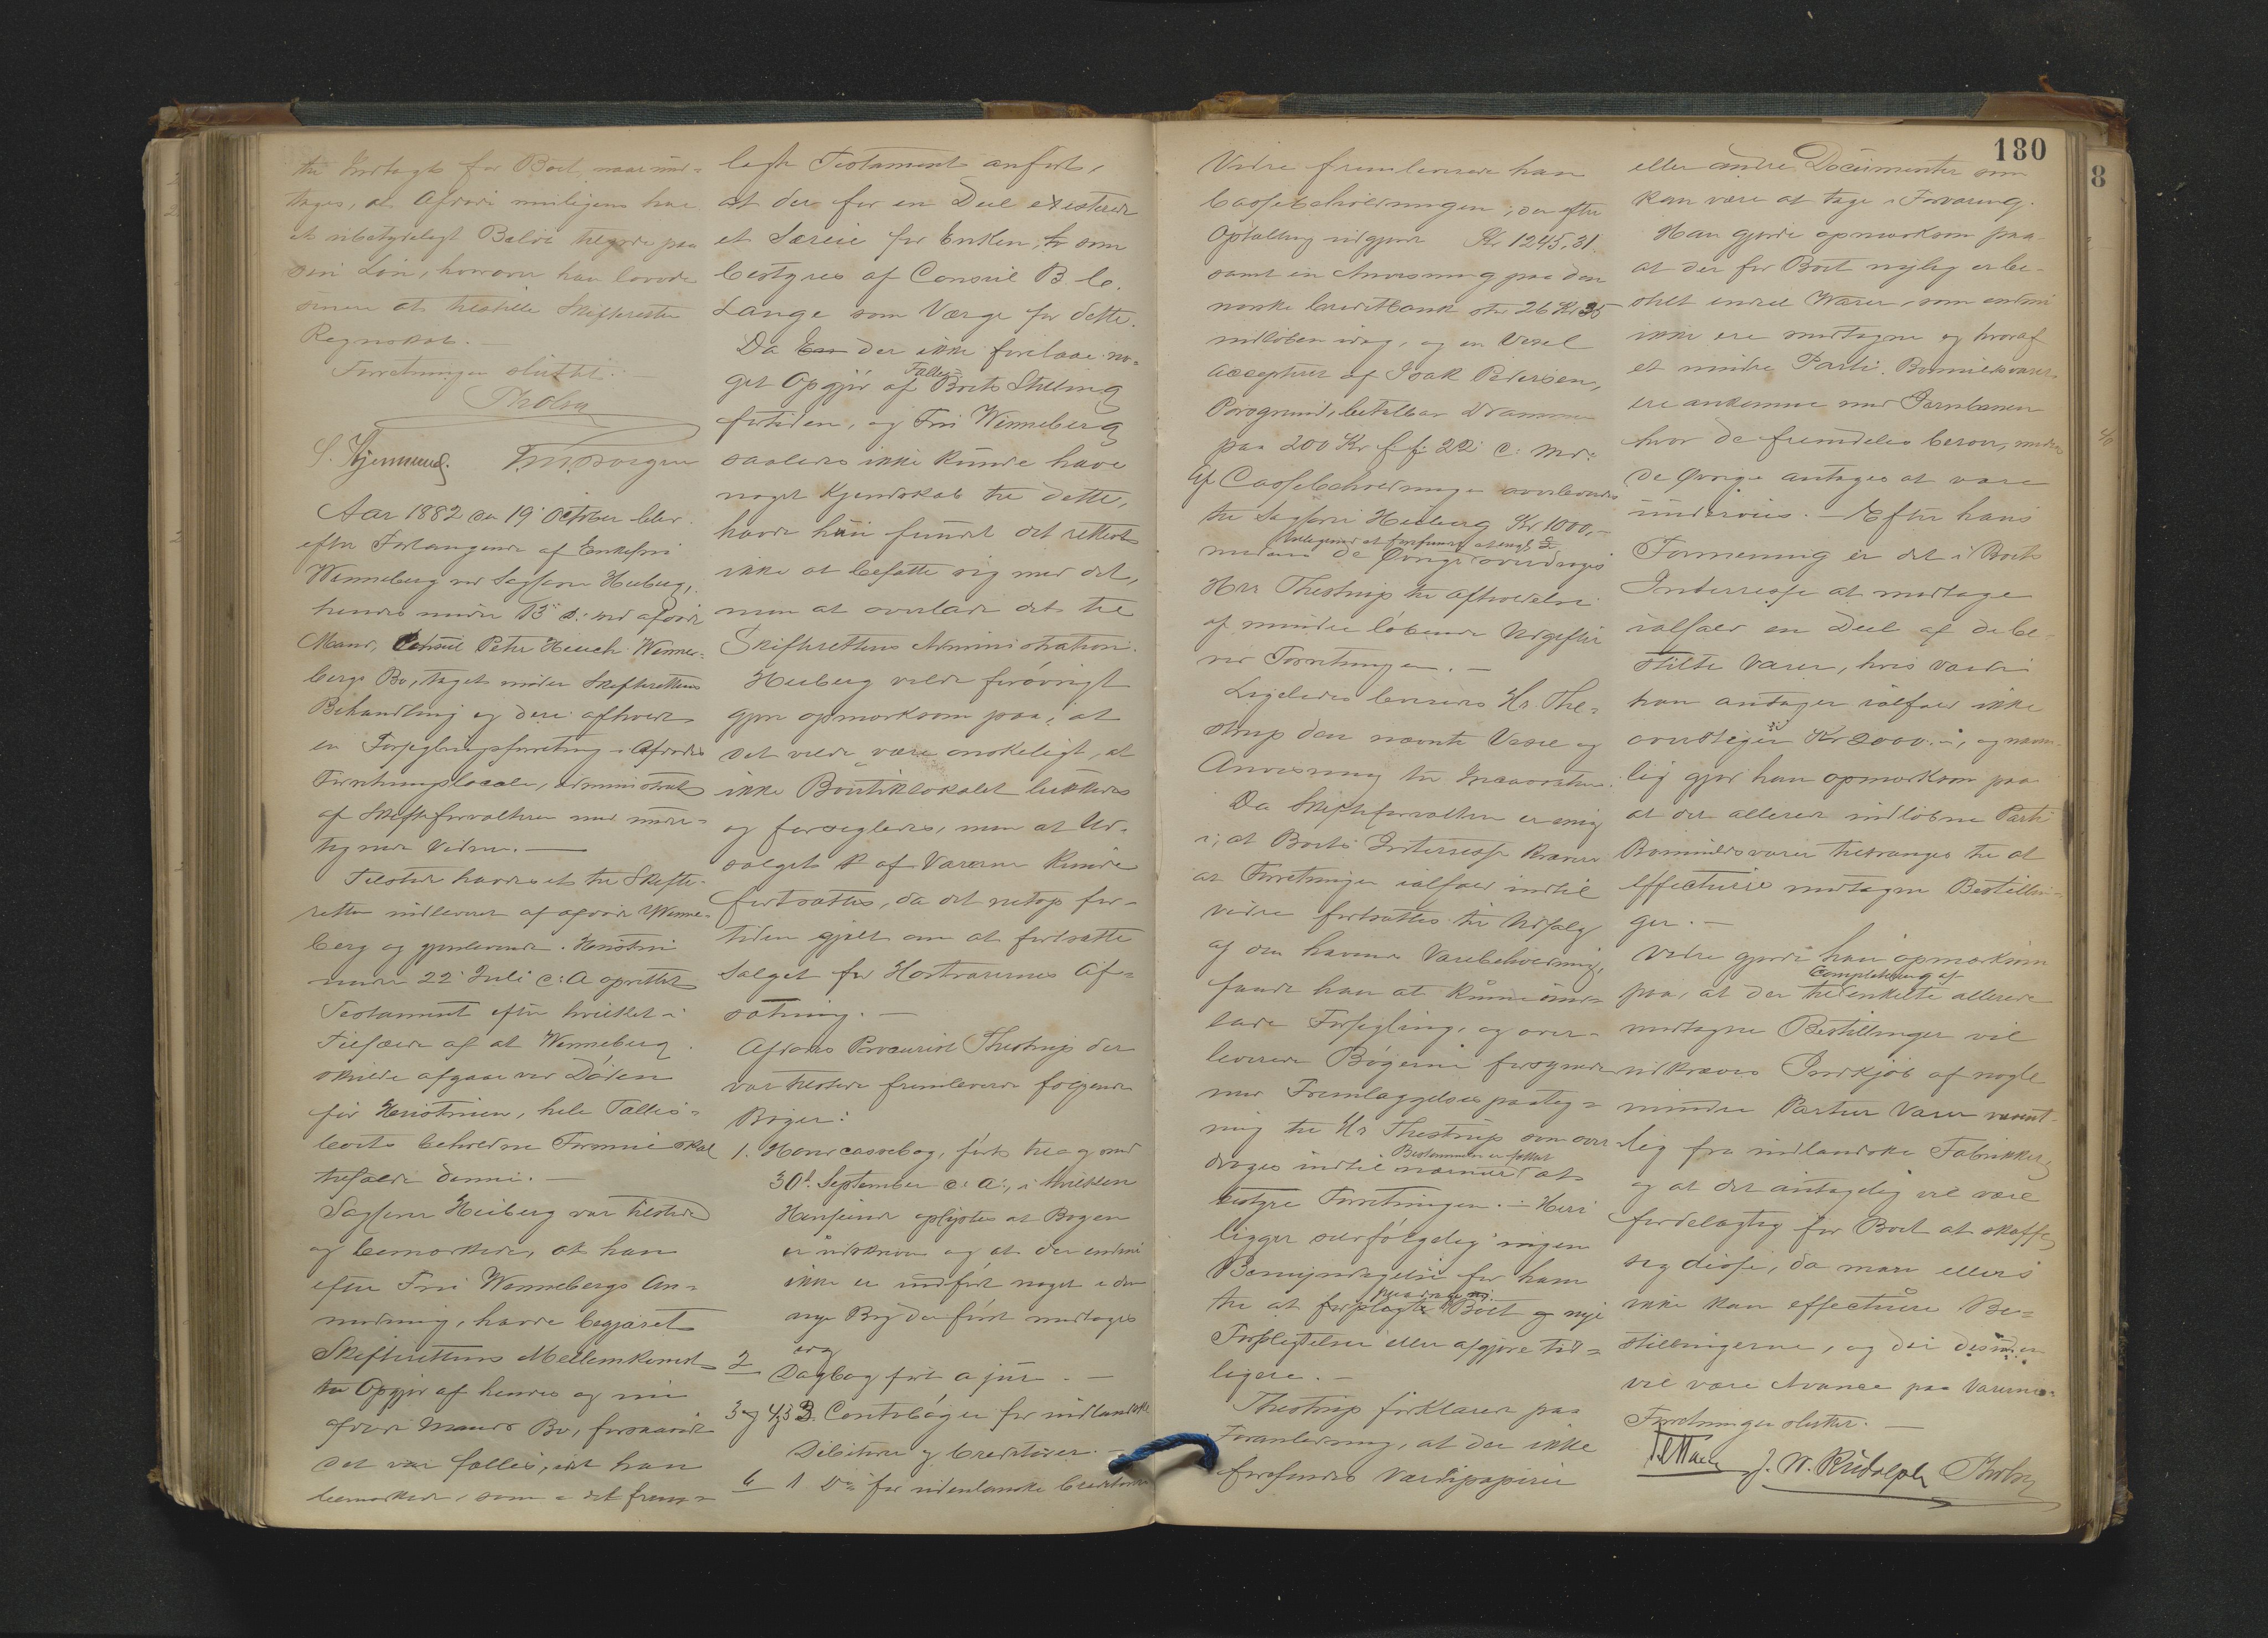 til Indtægt for Boet, naar und-
tages, at Afdøde muligens har
et ubetydeligt Beløb tilgode paa
sin Løn, hvorover han lovede
senere at tilstille Skifteretten
Regnskab. —
Forretningen sluttet. —
Tholsen
S. Hjermund.
Aar 1882 den 19 October blev
efter Forlangende af Enkefru
Wenneberg ved Sagfører Heiberg,
hendes under 13 d: ved afdøde
Mand, Consul Peter Heuch Wenne-
bergs Bo, taget under Skifterettens
Behandling og deri afholdt
en Forseglingsforretning i Afdødes
Forretningslocale, administreret
af Skifteforvalteren med under-
tegnede Vidner. —
Tilstede havdes et til Skifte-
retten indleveret af afdøde Wenne-
berg og gjenlevende Hustru
under 22 Juli c: A oprettet
Testament efter hvilket i
Tilfælde af at Wenneberg
skulde afgaae ved Døden
før Hustruen, hele Fælles-
boets beholdne Formue skal
tilfalde denne. —
Sagfører Heiberg var tilstede
og bemærkede, at han
efter Fru Wennebergs An-
modning, havde begjæret
Skifterettens Mellemkomst
til Opgjør af hendes og nu
afdøde Mands Bo, forsaavidt
det var fælles, idet han
bemærkede, som i det frem-
lagte Testament anført,
at der for en Deel existerer
et Særeie for Enken, som
bestyres af Consul B. C.
Lange som Værge for dette.
Da der ikke forelaae no-
get Opgjør af Fælles-Boets Stilling
fortiden, og Fru Wenneberg
saaledes ikke kunde have
noget Kjendskab til dette,
havde hun fundet det rettest
ikke at befatte sig med det,
men at overlade det til
Skifterettens Administration.
Heiberg vilde forøvrigt
gjøre opmærksom paa, at
det vilde være ønskeligt, at
ikke Boutiklokalet lukkedes
og forsegledes, men at Ud-
salget af Varerne kunde
fortsættes, da det netop for-
tiden gjælt om at fortsætte
Salget for Høstvarernes Af-
sætning. —
Afdødes Procurist Thestrup der
var tilstede fremleverede følgende
Bøger:
1. Hovedcassebog, ført til og med
30t September c: A:, i hvilken
Henseende oplystes at Bogen
er udskreven og at der endnu
ikke er indført noget i den
nye Bog der først modtages
idag
2 Dagbog ført a jür. —
3 og 4, 3 Contobøger for indlandske
Debitorer og Creditorer. —
6 1 Do for udenlandske Creditorer
180
Videre fremleverede han
Cassebeholdningen, der efter
Optælling udgjorde Kr 1245,31.
samt en Anvisning paa den
norske Creditbank stor 26 Kr 35
indløben idag, og en Vexel
accepteret af Isak Pedersen,
Porsgrund, betalbar Drammen
paa 200 Kr f. f. 22 c: Md:
Af Cassebeholdningen overleveredes
til Sagfører Heiberg Kr 1000,-
medens de Øvrige overdroges
Hr Thestrup til Afholdelse
af mindre løbende Udgifter
ved Forretningen. —
Ligeledes leveredes Hr. The-
strup den nævnte Vexel og
Anvisning til Incassation.
Da Skifteforvalteren er enig
i, at Boets Interesse kræver
at Forretningen ialfald indtil
videre fortsættes til Udsalg
af den havende Varebeholdning,
fandt han at kunne und-
lade Forsegling, og over-
leverede Bøgerne forsynede
med Fremlæggelsespaateg-
ning til Hr Thestrup som over-
droges indtil nærmere Bestemmelse er fattet at
bestyre Forretningen. — Heri
ligger selvfølgelig ingen
Bemyndigelse for ham
til at Boet nye
Forpligtelser eller afgjøre tid-
ligere. —
Thestrup forklarede paa
Foranledning, at der ikke
forefandtes Værdipapirer
eller andre Documenter som
kan være at tage i Forvaring.
Han gjorde opmærksom paa
at der for Boet nylig er be-
stilt endeel Varer, som endnu
ikke ere modtagne og hvoraf
et mindre Parti Bomuldsvarer
ere ankomne med Jernbanen
hvor de fremdeles beroer, medens
de Øvrige antages at være
underveis. — Efter hans
Formening er det i Boets
Interresse at modtage
ialfald en Deel af de be-
stilte Varer, hvis Værdi
han antager ialfald ikke
overstiger Kr 2000.-, og navn-
lig gjør han opmærksom paa
at det allerede indløbne Parti
Bomuldsvarer tiltrænges til at
effectuere modtagne Bestillin-
ger. —
Videre gjorde han opmærksom
paa, at der til Completering af enkelte allerede
modtagne Bestillinger vil
udkræves Indkjøb af nogle
mindre Partier Varer navnt-
lig fra indlandske Fabrikker,
og at det antagelig vil være
fordelagtig for Boet at skaffe
sig disse, da man ellers
ikke kan effectuere Be-
stillingerne, og der desuden
vil være Avance paa Varerne.
Forretningen sluttet. —
J. W. Rudolph Tholsen
8